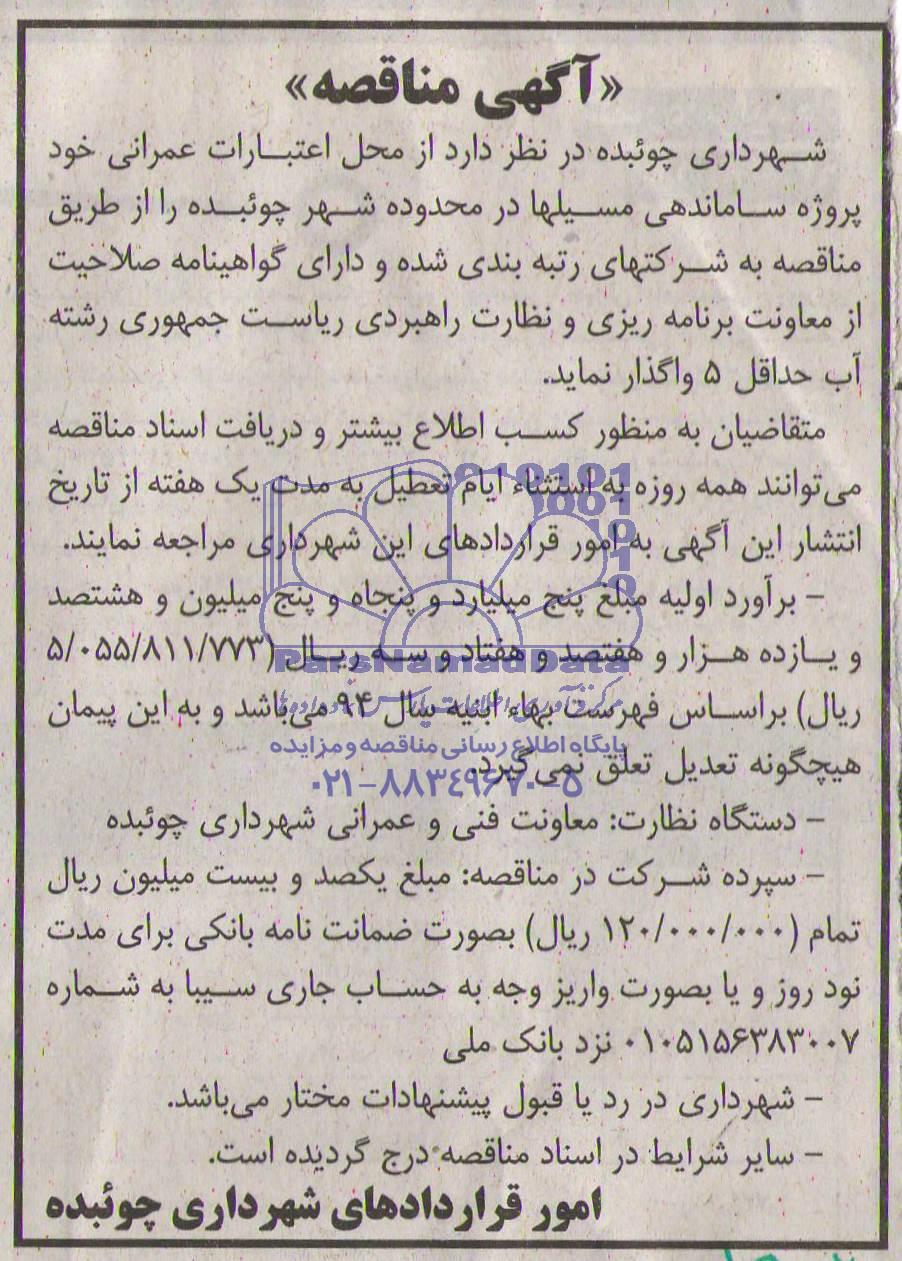 «آگهی مناقصه»
شهرداری چوئبده در نظر دارد از محل اعتبارات عمرانی خود
پروژه ساماندهی مسیلها در محدوده شهر چوئبده را از طریق
مناقصه به شرکتهای رتبه بندی شده و دارای گواهینامه صلاحیت
از معاونت برنامه ریزی و نظارت راهبردی ریاست جمهوری رشته
آب حداقل ۵ واگذار نماید.
متقاضیان به منظور کسب اطلاع بیشتر و دریافت اسناد مناقصه
می‌توانند همه روزه به استثناء ایام تعطیل به مدت یک هفته از تاریخ
انتشار این آگهی به امور قراردادهای این شهرداری مراجعه نمایند.
- برآورد اولیه مبلغ پنج میلیارد و پنجاه و پنج میلیون و هشتصد
و یازده هزار و هفتصد و هفتاد و سه ریال (۵/۰۵۵/۸۱۱/۷۷۳
ParsNamadData
ریال) براساس فهرست بهاء ابنیه سال ۹۴ می‌باشد و به این پیمان
پایگاه اطلاع رسانی مناقصه و مزایده
هیچگونه تعدیل تعلق نمی‌گیرد.
۰۲۱-۸۸۳۴۹۶۷۰-۵
- دستگاه نظارت: معاونت فنی و عمرانی شهرداری چوئبده
- سپرده شرکت در مناقصه: مبلغ یکصد و بیست میلیون ریال
تمام (۱۲۰/۰۰۰/۰۰۰ ریال) بصورت ضمانت نامه بانکی برای مدت
نود روز و یا بصورت واریز وجه به حساب جاری سیبا به شماره
۰۱۰۵۱۵۶۳۸۳۰۰۷ نزد بانک ملی
- شهرداری در رد یا قبول پیشنهادات مختار می‌باشد.
- سایر شرایط در اسناد مناقصه درج گردیده است.
امور قراردادهای شهرداری چوئبده